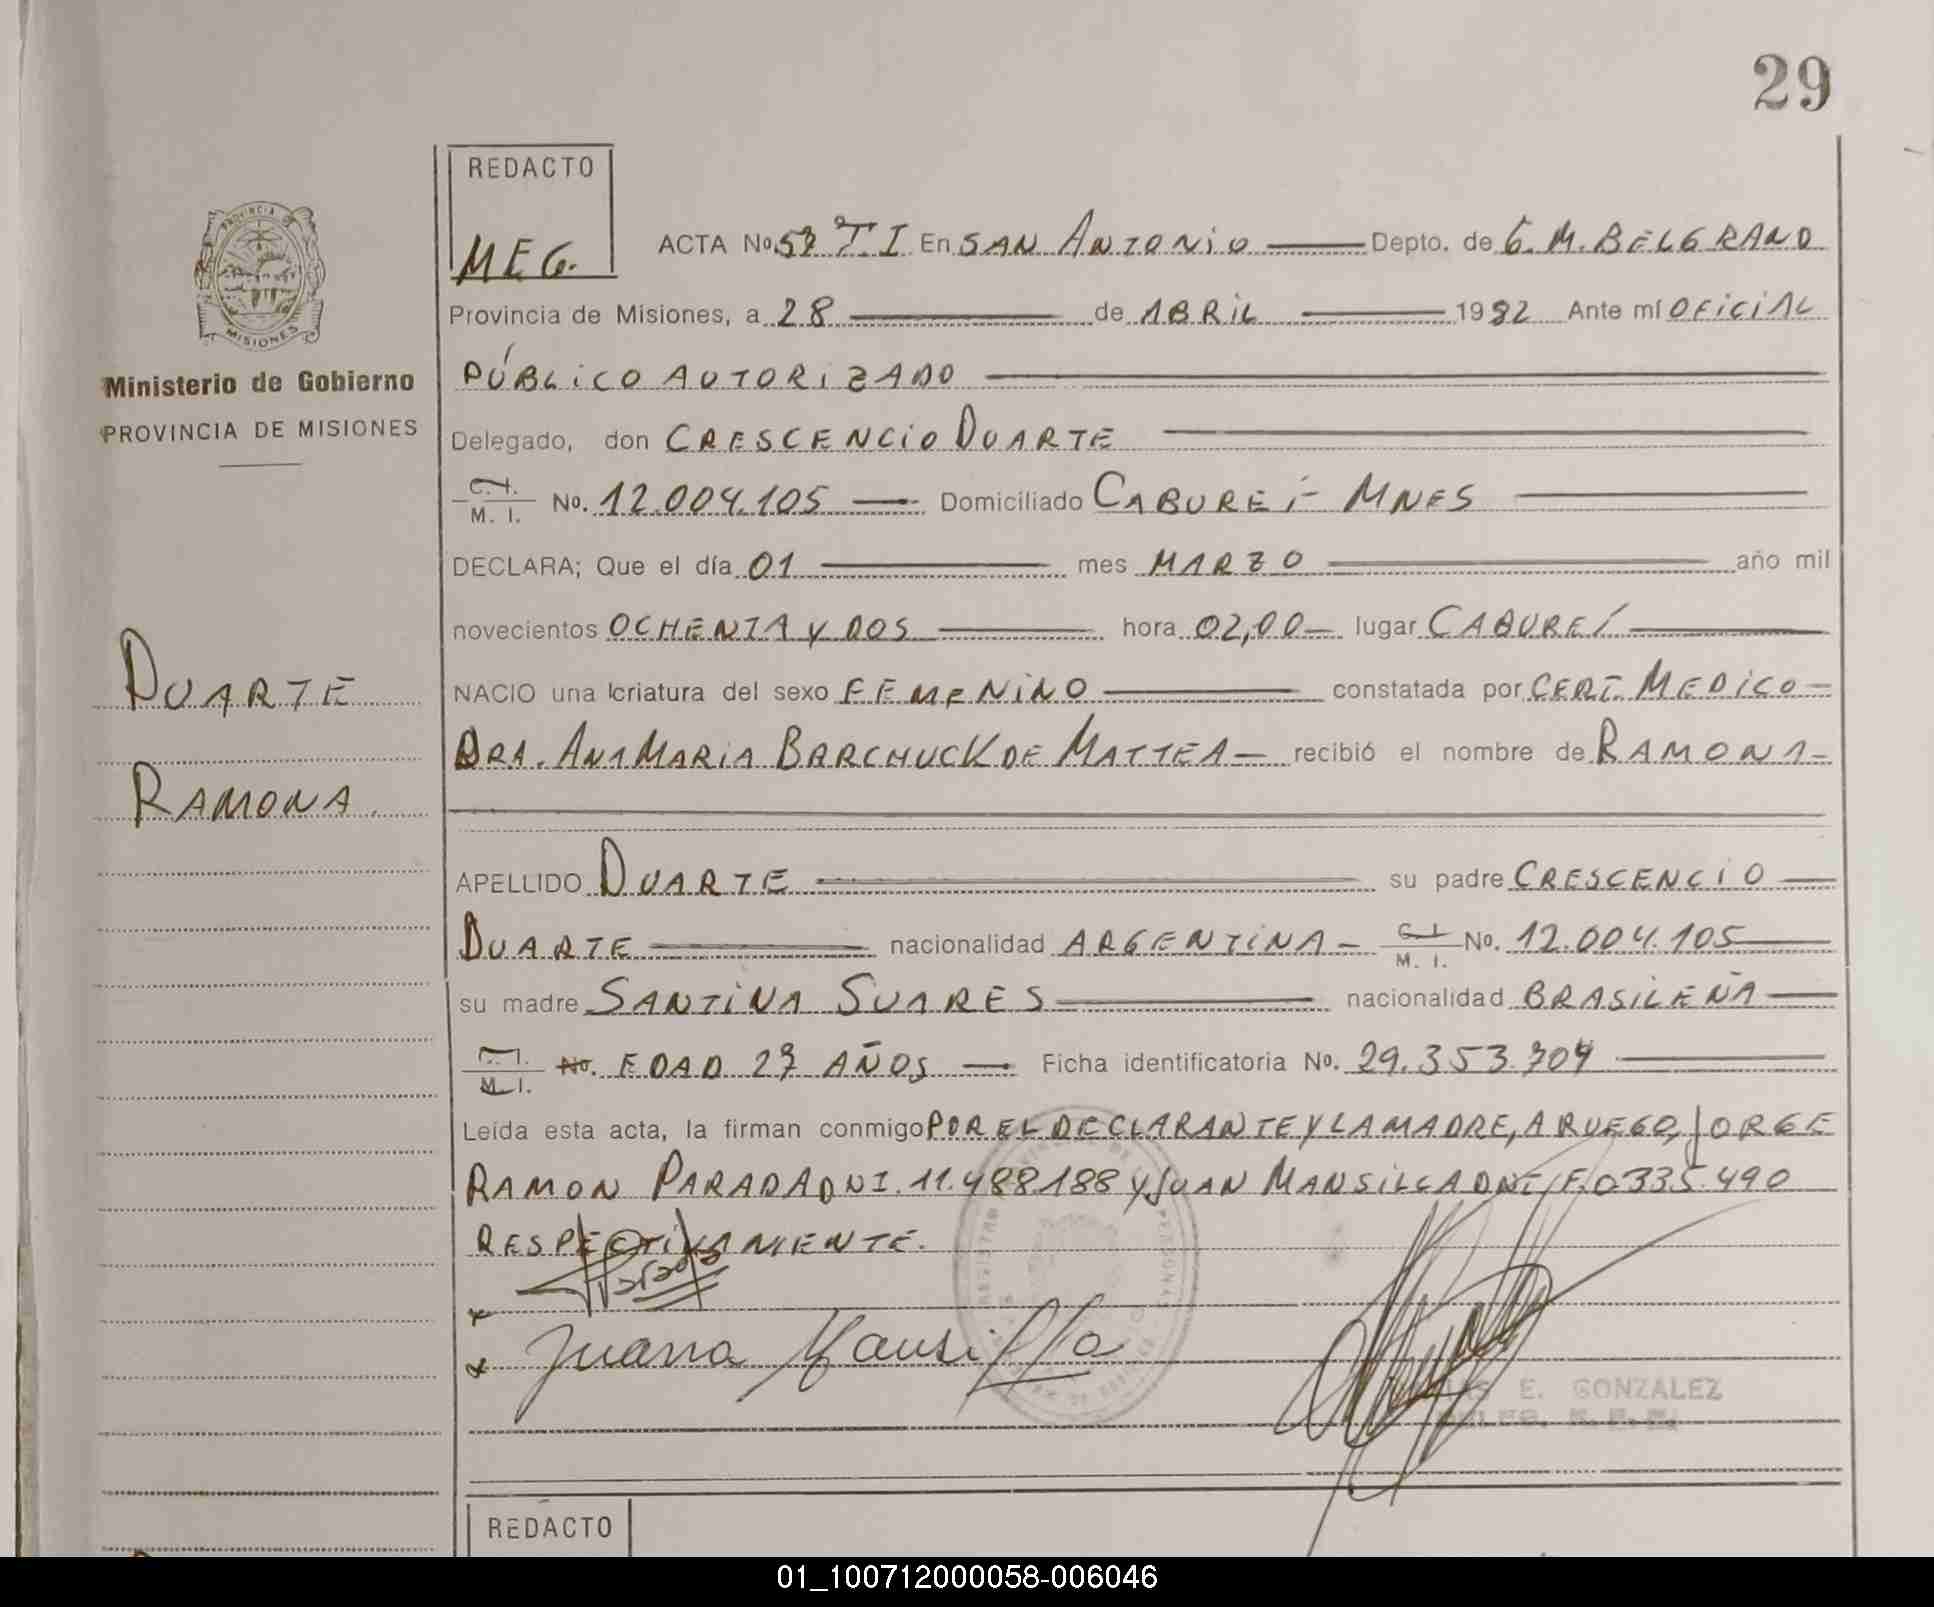 29
REDACTO
MEG.
PROVINCIA DE
MISIONES
Ministerio de Gobierno
PROVINCIA DE MISIONES
DUARTE
RAMONA.
ACTA No. 57 T. I En SAN ANTONIO Depto. de G. M. BELGRANO
Provincia de Misiones, a 28 de ABRIL 1982 Ante mí OFICIAL
PÚBLICO AUTORIZADO
Delegado, don CRESCENCIO DUARTE
C. I. M. I. No. 12.004.105 Domiciliado CABUREÍ - MNES
DECLARA; Que el día 01 mes MARZO año mil
novecientos OCHENTA Y DOS hora 02,00 lugar CABUREÍ
NACIO una criatura del sexo FEMENINO constatada por CERT. MEDICO
DRA. ANA MARIA BARCHUCK DE MATTEA recibió el nombre de RAMONA
APELLIDO DUARTE su padre CRESCENCIO
DUARTE nacionalidad ARGENTINA C. I. M. I. No. 12.004.105
su madre SANTINA SUARES nacionalidad BRASILEÑA
C. I. M. I. No. EDAD 27 AÑOS Ficha identificatoria No. 29.353.704
Leída esta acta, la firman conmigo POR EL DECLARANTE Y LA MADRE, A RUEGO, JORGE
RAMON PARADA DNI. 11.488.188 Y JUAN MANSILLA DNI F. 0.335.490
RESPECTIVAMENTE.
x Parada
x Juana Mansilla
E. GONZALEZ
REDACTO
01_100712000058-006046